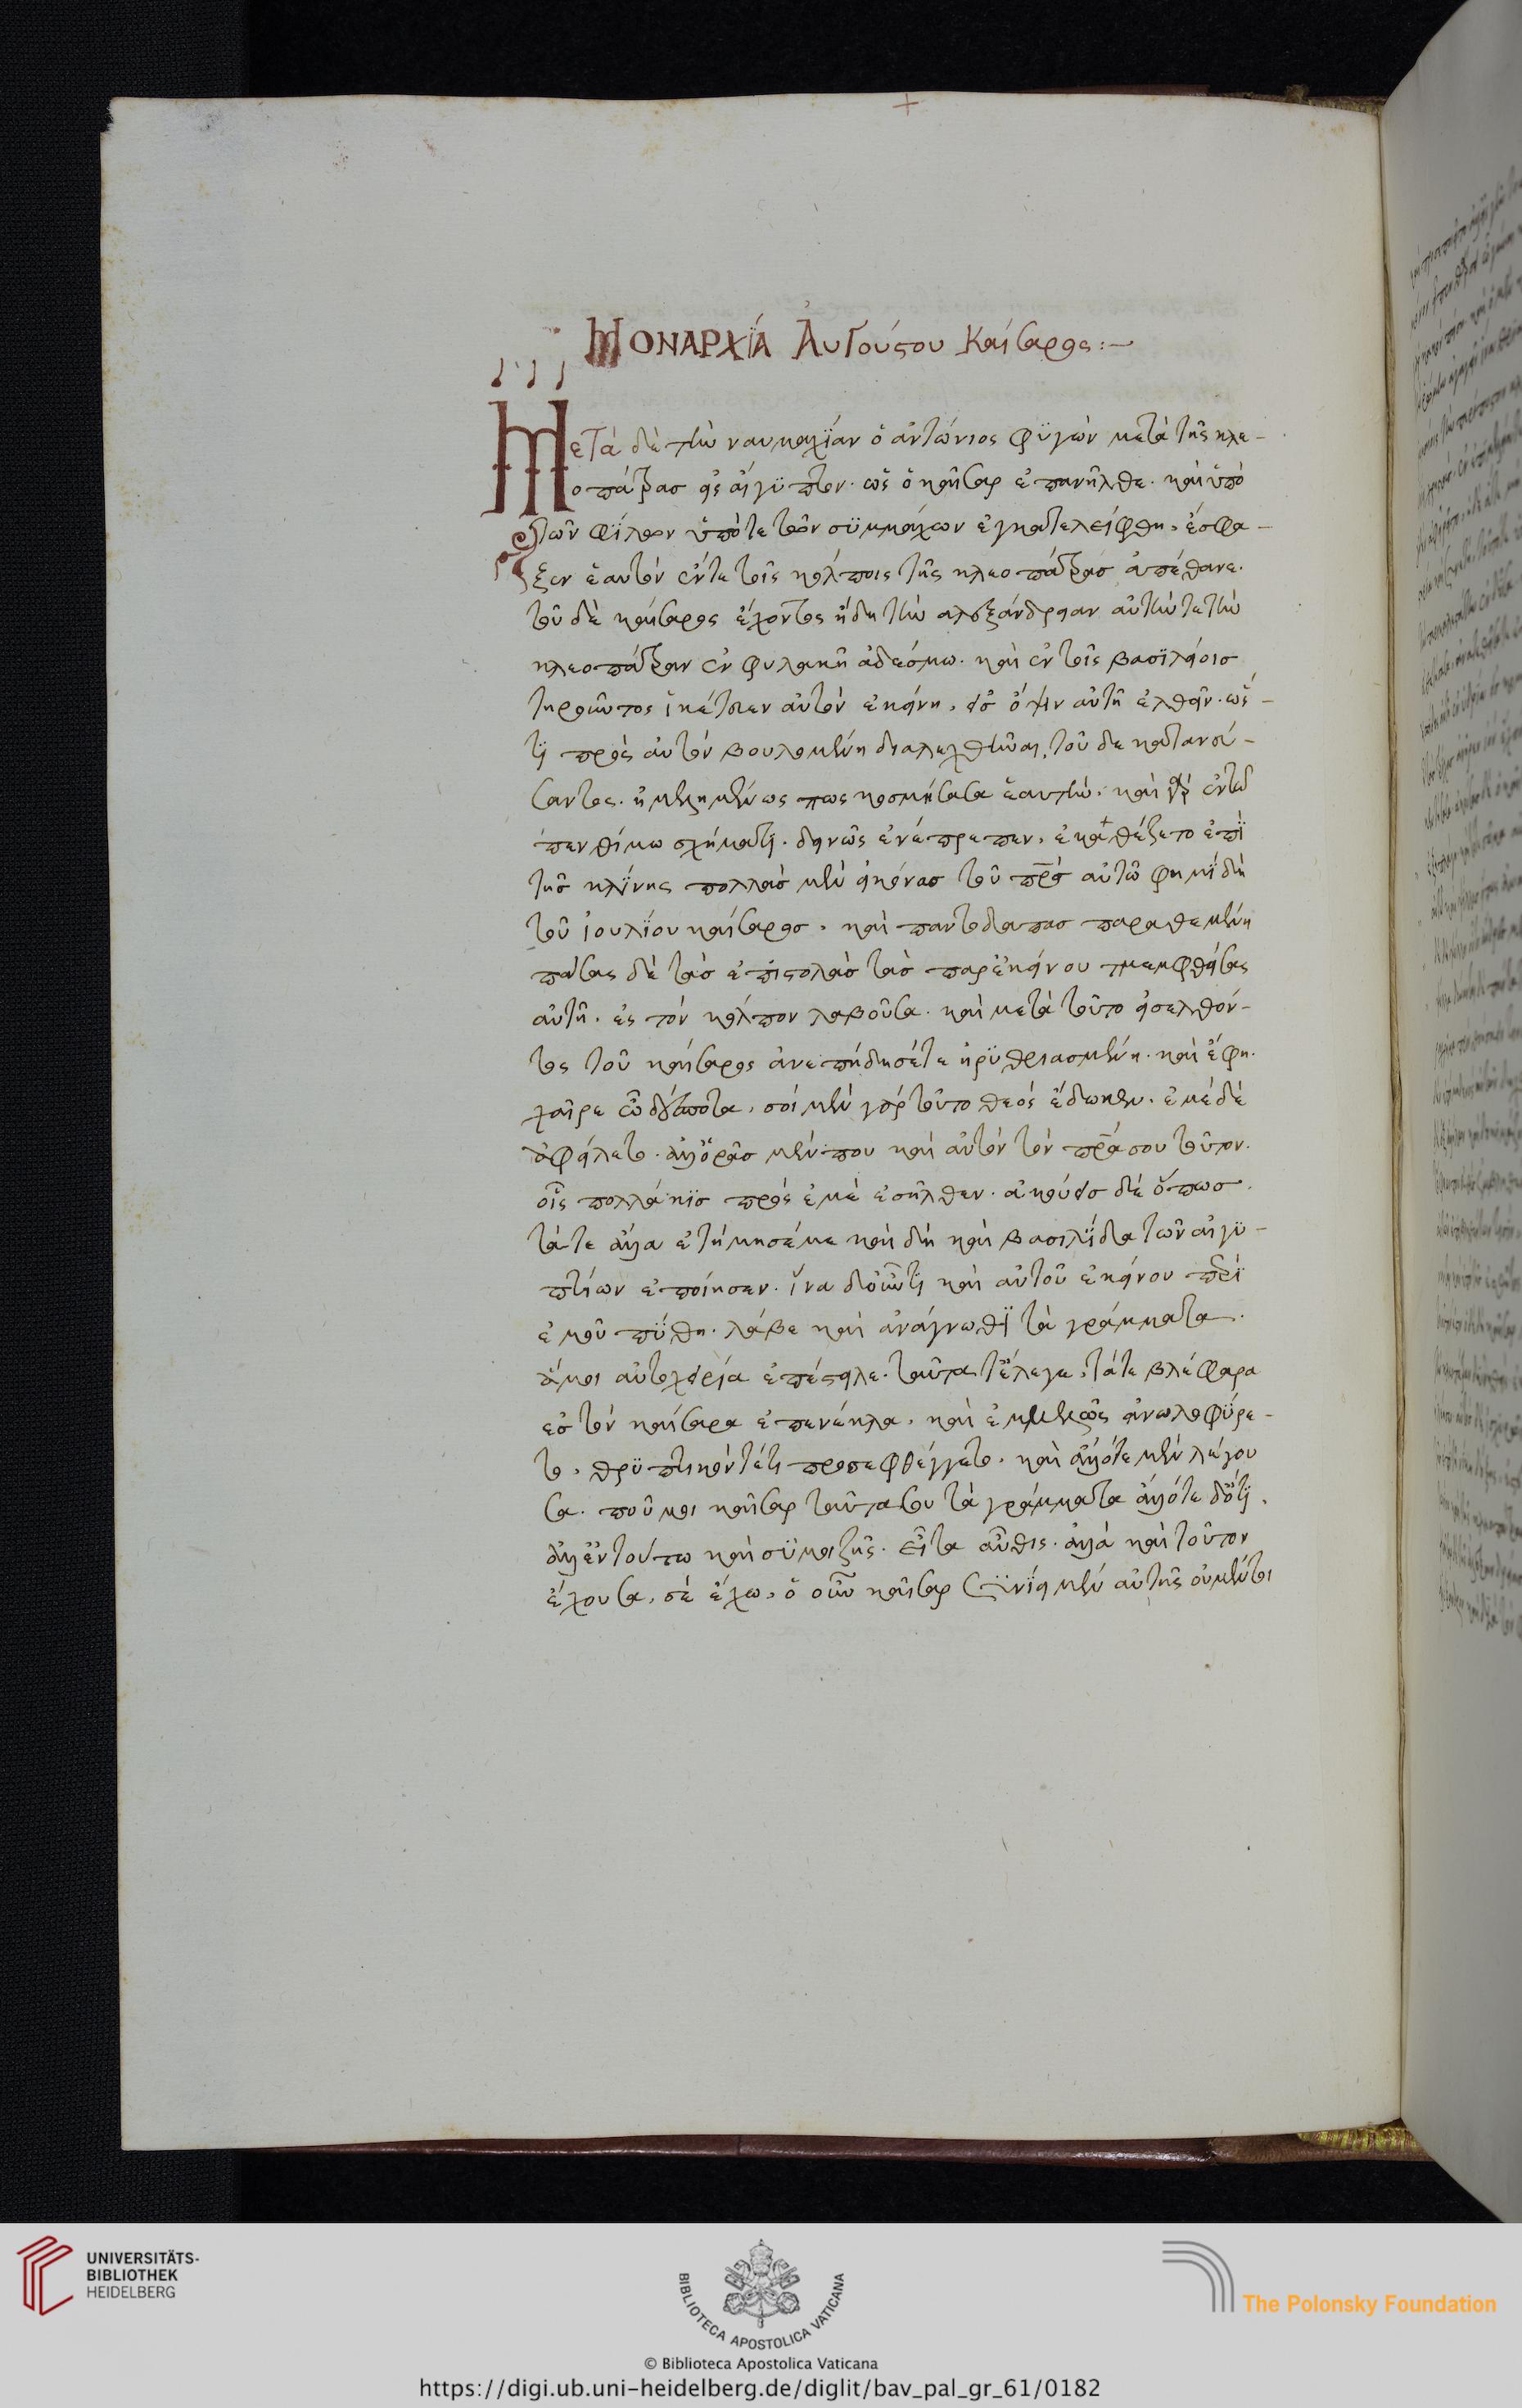 ΜΟΝΑΡΧΪ́Α Αὐγούστου Καίσαρος :—
Μετὰ δὲ τὴν ναυμαχΐαν ὁ ἀντώνιος φϋγὼν μετὰ τῆς κλε-
οπάτρας εἰς αἴγϋπτον. ὡς ὁ καῖσαρ ἐπανῆλθε. καὶ ὑπὸ
τῶν φίλων ὑπό τε τῶν σϋμμάχων ἐγκατελείφθη, ἔσφα-
ξεν ἑαυτόν ἔν τε τοῖς κόλποις τῆς κλεοπάτρας ἀπέθανε.
τοῦ δὲ καίσαρος ἔχοντος ἤδη τὴν αλεξάνδρειαν αὐτήν τε τὴν
κλεοπάτραν ἐν φυλακῆ ἀδέσμω. καὶ ἐν τοῖς βασϊλείοις
τηροῦντος ἱκέτευεν αὐτόν ἐκείνη, εἰς ὄψιν αὐτῆ ἐλθεῖν. ὡς
τι πρὸς αὐτόν βουλομένη διαλεχθῆναι, τοῦ δε κατανεύ-
σαντος. ἠμελημένως πως κοσμήσασα ἑαυτήν. καὶ γὰρ ἐν τῶ
πενθίμω σχήματι. δεινῶς ἐνέπρεπεν, ἐκαθέζετο ἐπϊ
τῆς κλΐνης πολλὰς μὲν εἰκόνας τοῦ πρς αὐτῶ φημὶ δὴ
τοῦ ἰουλΐου καίσαρος. καὶ παντοδαπας παραθεμένη
πάσας δὲ τὰς ἐπιστολὰς τὰς παρ' ἐκείνου πεμφθείσας
αὐτῆ. ἐς τόν κόλπον λαβοῦσα. καὶ μετὰ τοῦτο εἰσελθόν-
τος τοῦ καίσαρος ἀνεπήδησέ τε ἠρϋθριασμένη. καὶ ἔφη.
χαῖρε ὦ δέσποτα, σοὶ μὲν γὰρ τοῦτο θεός ἔδωκεν. ἐμὲ δὲ
ἀφείλετο. ἀλλ' ὁρᾶς μέν που καὶ αὐτόν τόν πρα σου τοῦτον.
οἷς πολλάκϊς πρός ἐμὲ ἐσῆλθεν. ἀκούεις δὲ ὅπως
τά τε ἄλλα ἐτήμησέ με καὶ δὴ καὶ βασιλΐδα τῶν αἰγϋ-
πτίων ἐποίησεν. ἵνα δ' οὖν τι καὶ αὐτοῦ ἐκείνου περϊ
ἐμοῦ πΰθη. λάβε καὶ ἀνάγνωθϊ τὰ γράμματα.
ἅ μοι αὐτοχειρία ἐπέστειλε. ταῦτα τ' ἔλεγε, τά τε βλέφαρα
ες τόν καίσαρα ἐπενέκλα, καὶ ἐμμελῶς ἀνωλοφΰρε-
το, θρϋπτικόν τέ τι προσεφθέγγετο. καὶ ἄλλοτε μὲν λέγου
σα. ποῦ μοι καῖσαρ ταῦτα σου τὰ γράμματα ἄλλοτε δ' ὅτι.
ἀλλ' ἐν τούτω καὶ σϋ μοι ζῆς. εἶτα αὖθις. ἀλλὰ καὶ τοῦτον
ἔχουσα, σὲ ἔχω, ὁ οὖν καῖσαρ σϋνΐει μὲν αὐτῆς οὐ μέντοι
UNIVERSITÄTS-
BIBLIOTHEK
HEIDELBERG
BIBLIOTECA APOSTOLICA VATICANA
The Polonsky Foundation
© Biblioteca Apostolica Vaticana
https://digi.ub.uni-heidelberg.de/diglit/bav_pal_gr_61/0182